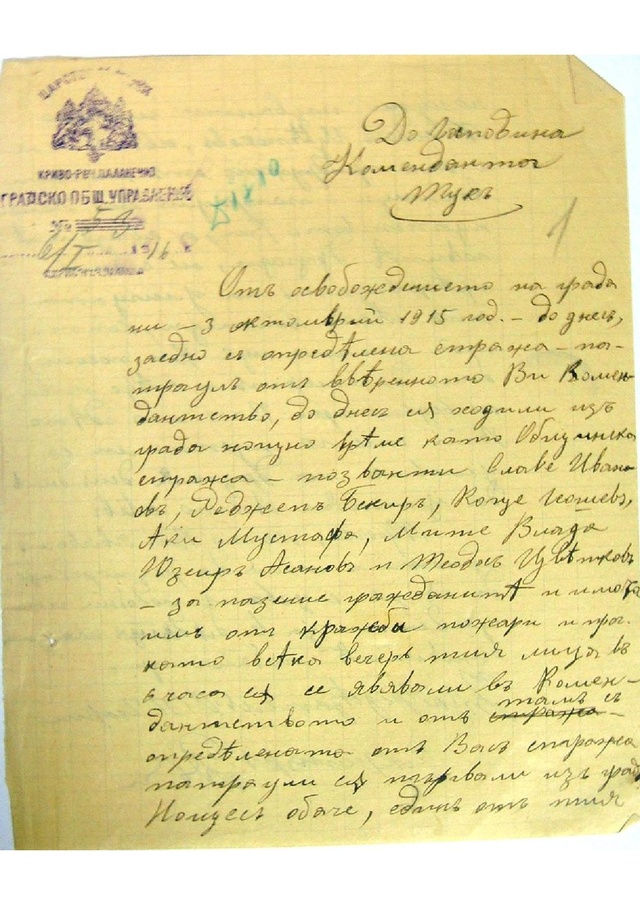 ЦАРСТВО
КРИВО-РѢЧ.ПАЛАНЕЧКО
ГРАДСКО ОБЩ. УПРАВЛЕНИЕ
№ 53
6/I 1916
До Господина
Комендантот
Тукъ
1
Отъ освобождението на града
ни – 3 октомврий 1915 год. – до днесь,
заедно съ опредѣлена стража – па-
траулъ отъ ввѣренното Ви Комен-
дантство, до днесь сѫ ходили изъ
града нощно врѣме като Общинска
стража – позванти Славе Ивано
въ, Реджепъ Бекиръ, Коце
Аки Мустафа, Мите Влада
Юзеиръ Асановъ и Теодосъ Цвѣтковъ
– за пазение гражданитѣ и имота
имъ отъ кражби пожари и проч.
като всѣка вечерь тия лица въ
6 часа сѫ се явявали въ Комен-
дантството и отъ тамъ съ
стража –
опредѣлената отъ Васъ стража
патраули сѫ тъгвали изъ града
Нощесъ обаче, единъ отъ тия